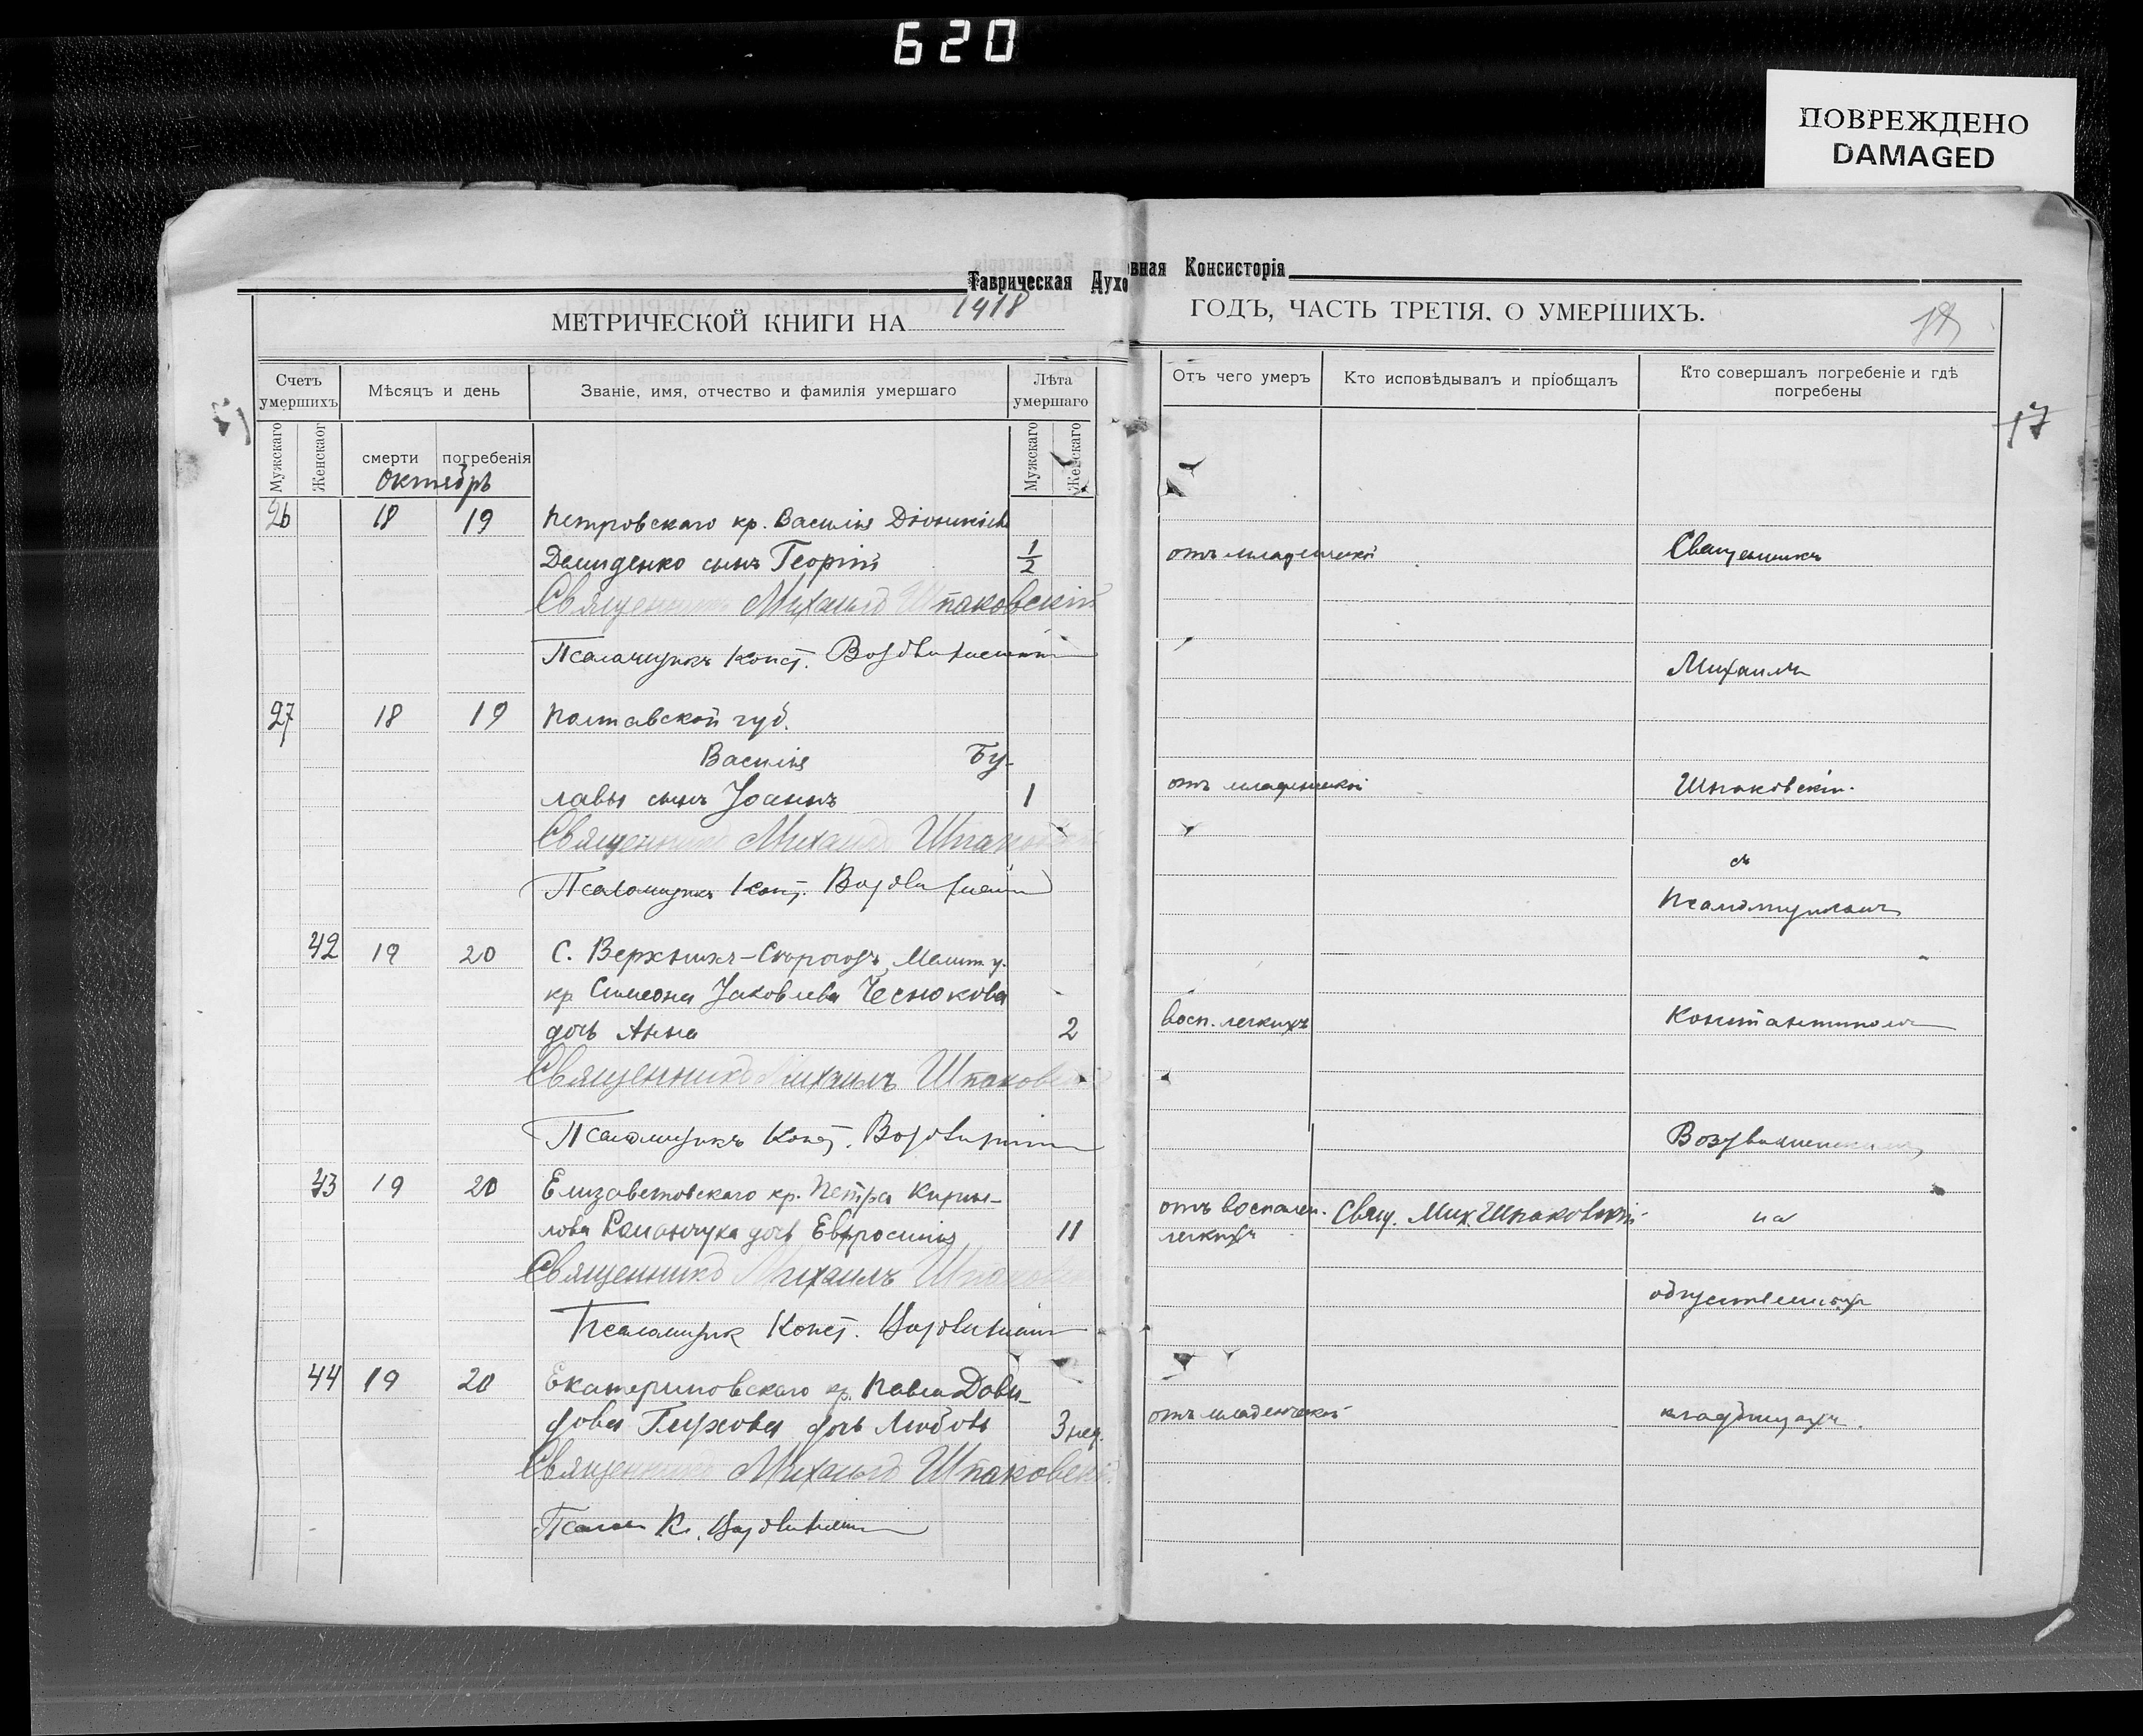 620
ПОВРЕЖДЕНО
DAMAGED
Таврическая Духовная Консисторія
МЕТРИЧЕСКОЙ КНИГИ НА 1918 ГОДЪ, ЧАСТЬ ТРЕТІЯ, О УМЕРШИХЪ.
17
Счетъ умершихъ
Мѣсяцъ и день
Званіе, имя, отчество и фамилія умершаго
Лѣта умершаго
Отъ чего умеръ
Кто исповѣдывалъ и пріобщалъ
Кто совершалъ погребеніе и гдѣ погребены
Мужскаго
Женскаог
смерти
погребенія
Мужскаго
Женскаго
Октябрь
26 18 19 Петровскаго кр. Василія Діонисіев
Демиденко сынъ Георгій 1/2 отъ младенческой Священникъ
Священникъ Михаилъ Шпаковскій
Псаломщикъ Конст. Воздвиженскій
Михаилъ
27 18 19 Полтавской губ.
Василія Бу-
лавы сынъ Іоаннъ 1 отъ младенческой Шпаковскій.
Священникъ Михаилъ Шпаковскій
съ
Псаломщикъ Конст. Воздвиженскій
Псаломщикомъ
42 19 20 С. Верхнихъ-Сѣрогозъ Мелит. у.
кр Симеона Іаковлева Чеснокова
дочь Анна 2 Восп. легкихъ Константиномъ
Священникъ Михаилъ Шпаковскій
Псаломщикъ Конст. Воздвиженскій
Воздвиженскимъ,
43 19 20 Елизаветовскаго кр. Петра Кирил-
лова Романчука дочь Евфросинія 11 отъ воспален. легкихъ Свящ. Мих. Шпаковскій на
Священникъ Михаилъ Шпаковскій
общественныхъ
Псаломщик Конст. Воздвиженскій
44 19 20 Екатериновскаго кр. Павла Дави-
дова дочь Любовь 3 нед. отъ младенческой кладбищахъ.
Священникъ Михаилъ Шпаковскій
Псалом К. Воздвиженскій